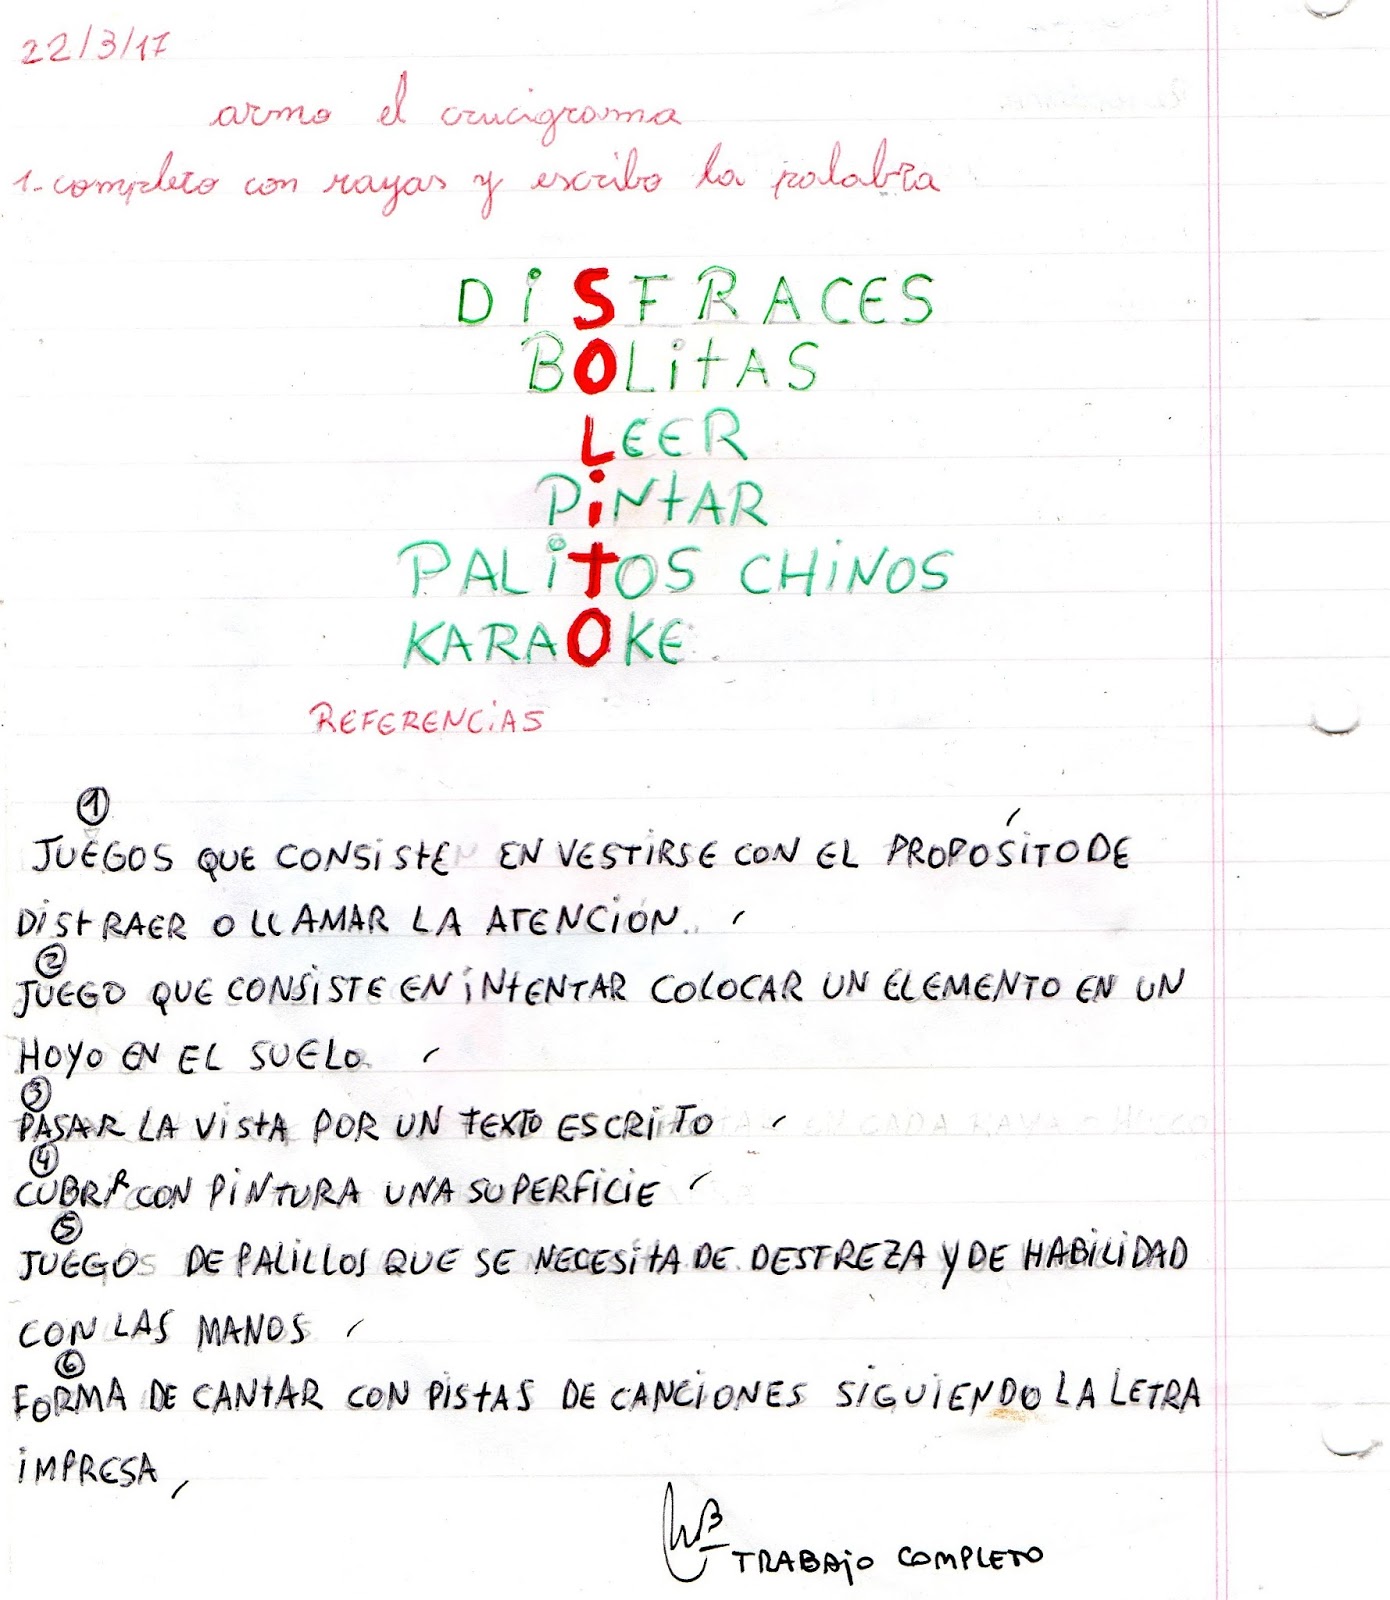 22/3/17
armo el crucigrama
1-completo con rayas y escribo la palabra
DiSFRACES
BOLitAS
LEER
PiNtAR
PALitOS CHiNOS
KARAOKE.
REFERENCiAS
1
JUEGOS QUE CONSiStE EN VESTiRSE CON EL PROPÓSiTO DE
DiStRAER O LLAMAR LA ATENCiÓN.
2
JUEGO QUE CONSiSTE EN iNtENTAR COLOCAR UN ELEMENTO EN UN
HOYO EN EL SUELO.
3
PASAR LA ViStA POR UN tEXTO ESCRiTO
4
CUBRiR CON PiNTURA UNA SUPERFiCiE
5
JUEGO DE PALiLLOS QUE SE NECESitA DE DESTREZA Y DE HABiLiDAD
CON LAS MANOS
6
FORMA DE CANtAR CON PiStAS DE CANCiONES SiGUiENDO LA LETRA
iMPRESA
TRABAjO COMPLETO